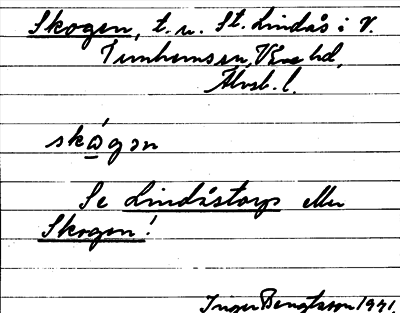 Skogen, t. u. St. Lindås i V.
Tunhems sn, Väne hd,
Älvsb. l.
skógən
Se Lindåstorp eller
Skogen!
Inger Bengtsson 1941.